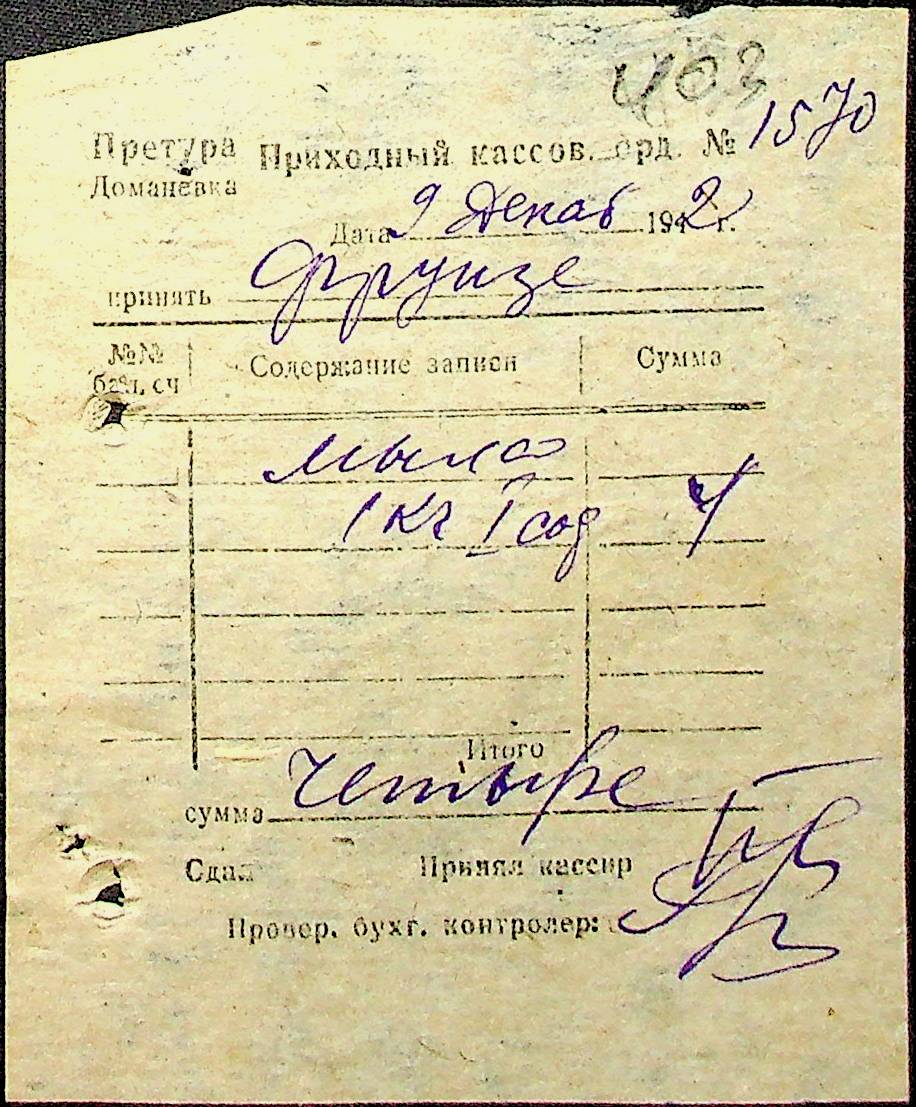 403
Претура Приходный кассов. орд. № 1570
Доманевка
Дата 9 Декаб 1942 г.
принять Фрунзе
№№ бал. сч Содержание записи Сумма
мыло
1 кг I сод 4
Итого
сумма четыре
Сдал Принял кассир
Провер. бухг. контролер: